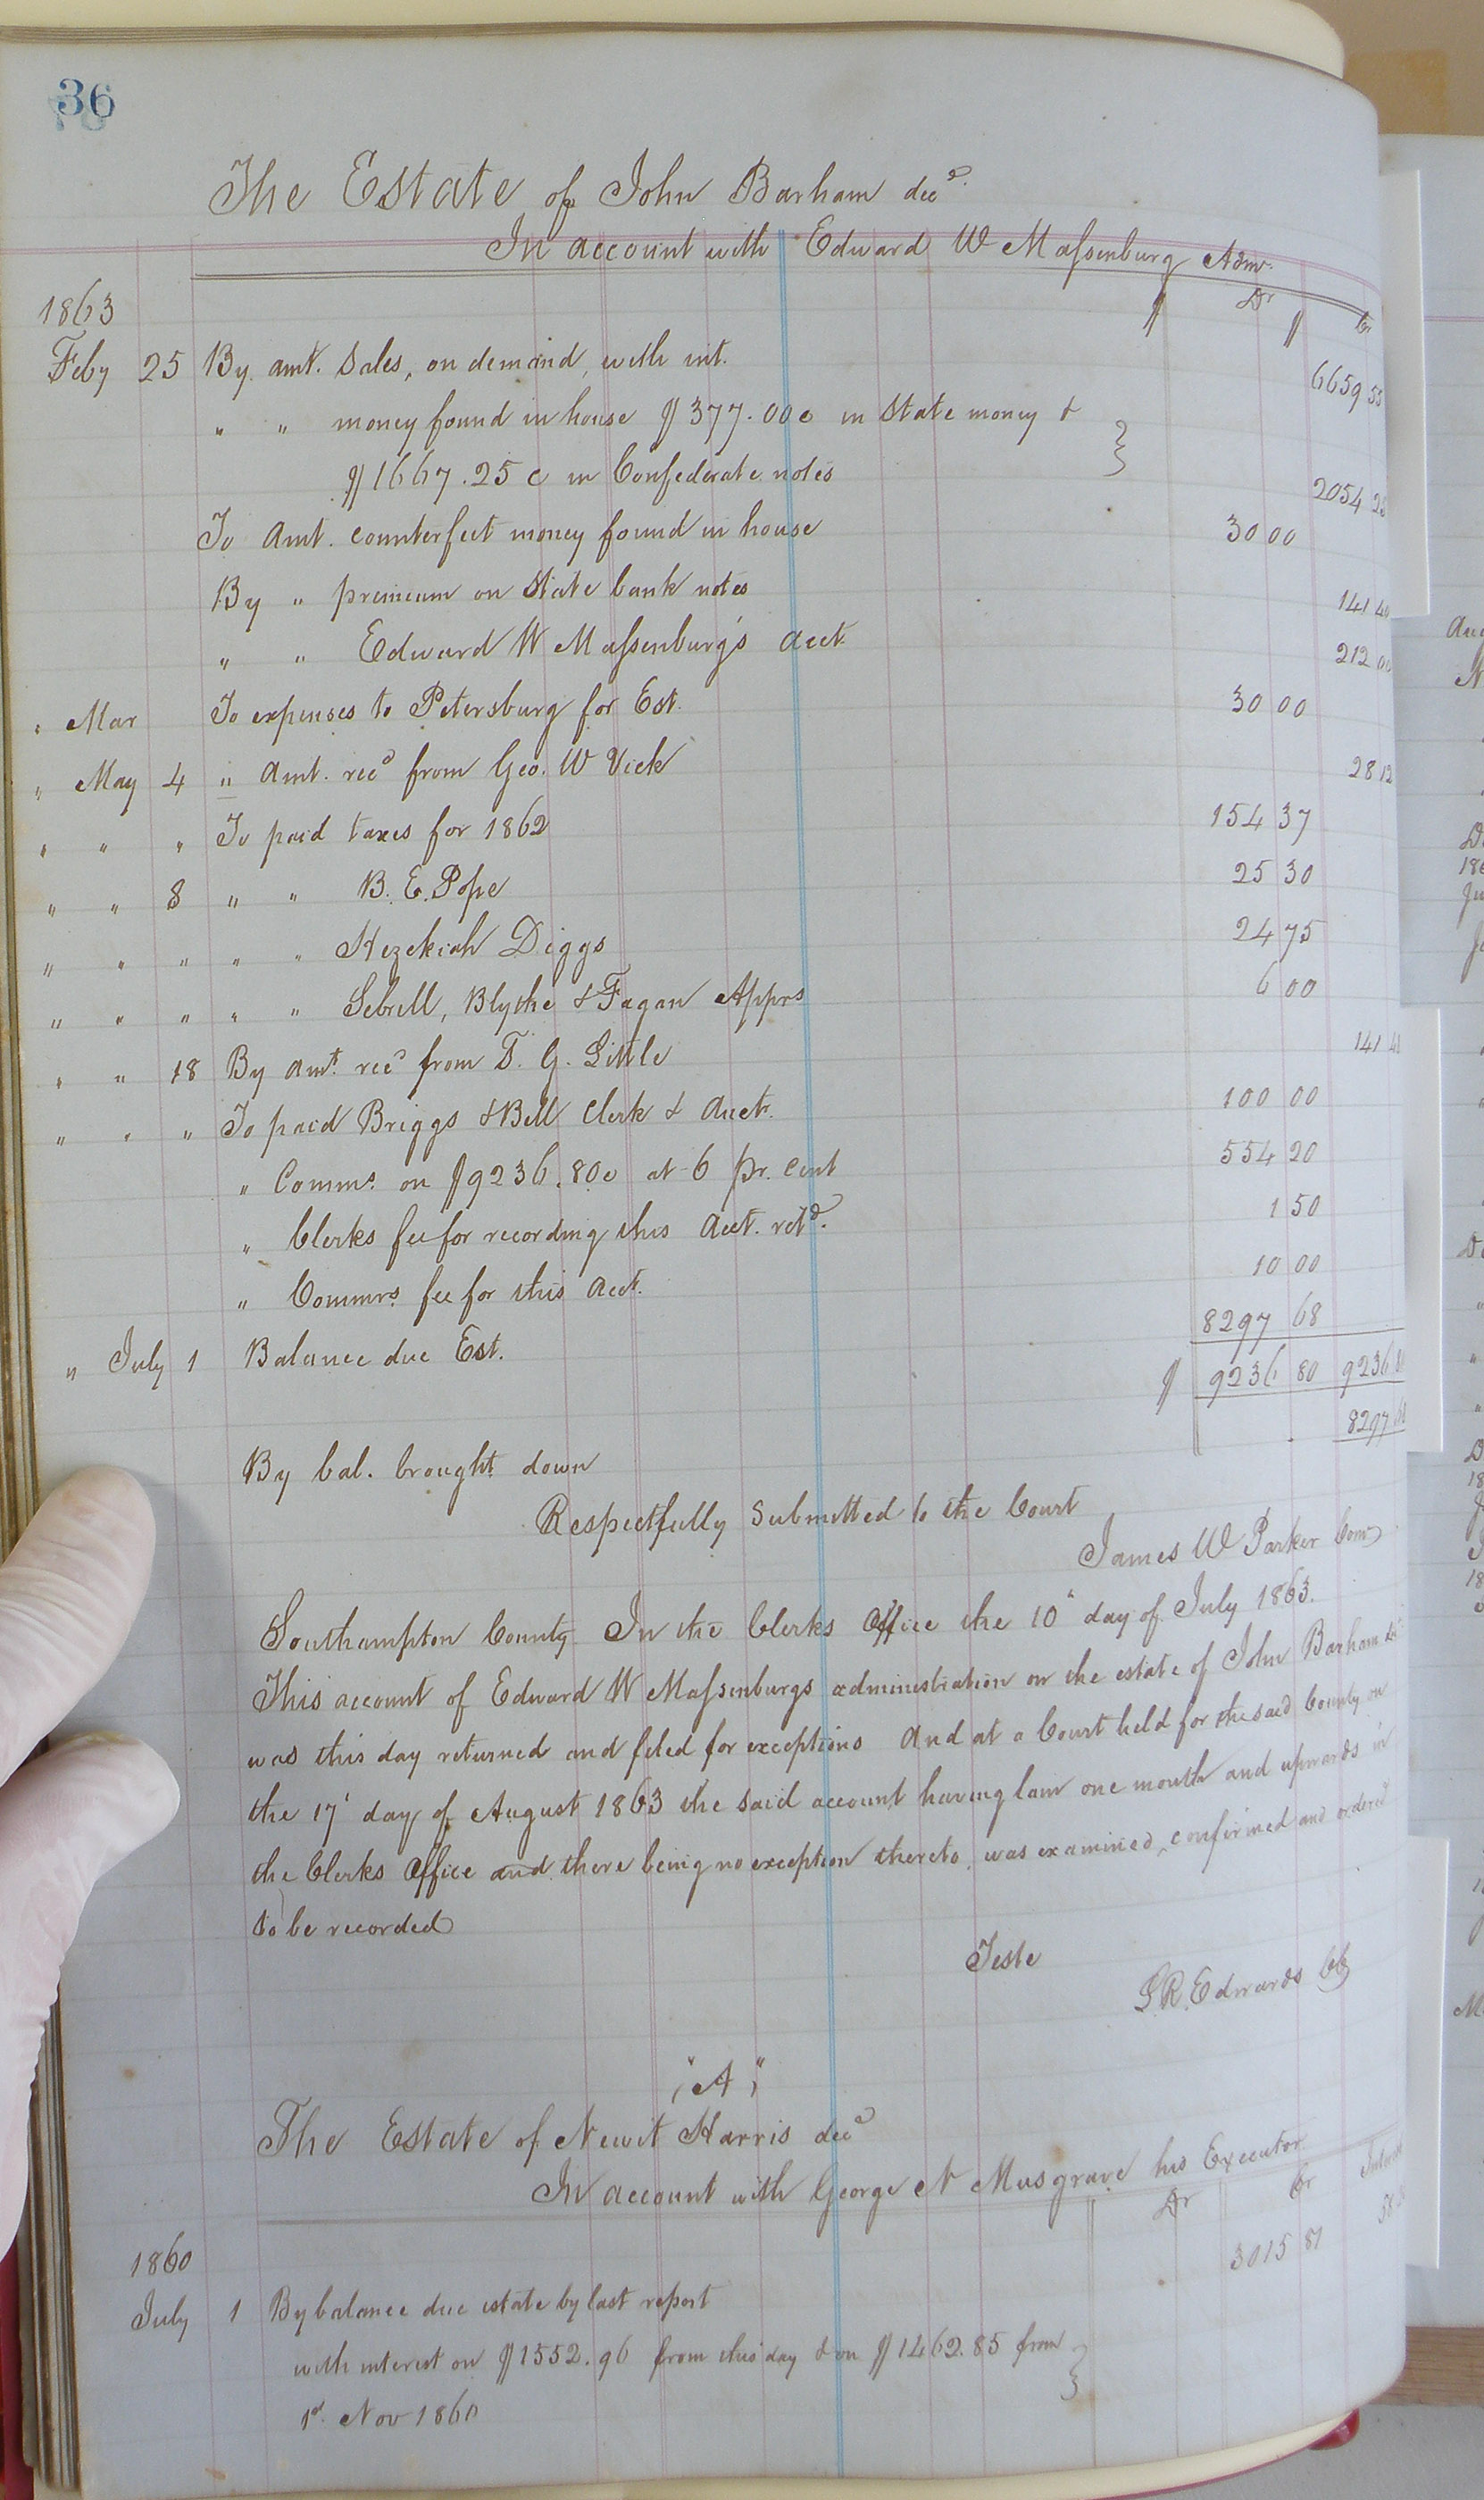 36
The Estate of John Barham decd.
In account with Edward W Massenburg Adm.
$ Dr $ Cr
1863
Feby 25 By amt. Sales, on demand, with int. 6659 55
" " money found in house $377.00c in State money &
$1667.25c in Confederate notes 2054 25
To Amt. counterfeit money found in house 30 00
By " premium on State bank notes 141 40
" " Edward W Massenburg's acct. 212 00
" Mar To expenses to Petersburg for Est. 30 00
" May 4 " Amt. recd from Geo. W Vick 28 12
" " " To paid taxes for 1862 154 37
" " 8 " " B. E. Pope 25 30
" " " " " Hezekiah Diggs 24 75
" " " " " Sebrell, Blythe & Fagan Apprs 6 00
" " 18 By amt. recd from T. G. Little 141 48
" " " To paid Briggs & Bell Clerk & Auctr. 100 00
" Comms. on $9236.80c at 6 pr. cent 554 20
" Clerks fee for recording this Acct. retd. 1 50
" Commrs. fee for this acct. 10 00
" July 1 Balance due Est. 8297 68
$ 9236 80 9236 80
8297 68
By bal. brought down
Respectfully Submitted to the Court
James W Parker Com
Southampton County In the Clerks Office the 10" day of July 1863.
This account of Edward W Massenburgs administration on the estate of John Barham dec
was this day returned and filed for exceptions And at a Court held for the said County on
the 17' day of August 1863 the said account having lain one month and upwards in
the Clerks Office and there being no exception thereto, was examined, confirmed and ordered
to be recorded
Teste
L R Edwards CC
"A"
The Estate of Newit Harris decd
In account with George N Musgrave his Executor
Dr Cr Interest
1860 3015 81
July 1 By balance due estate by last report
with interest on $1552.96 from this day & on $1462.85 from
1st. Nov 1860